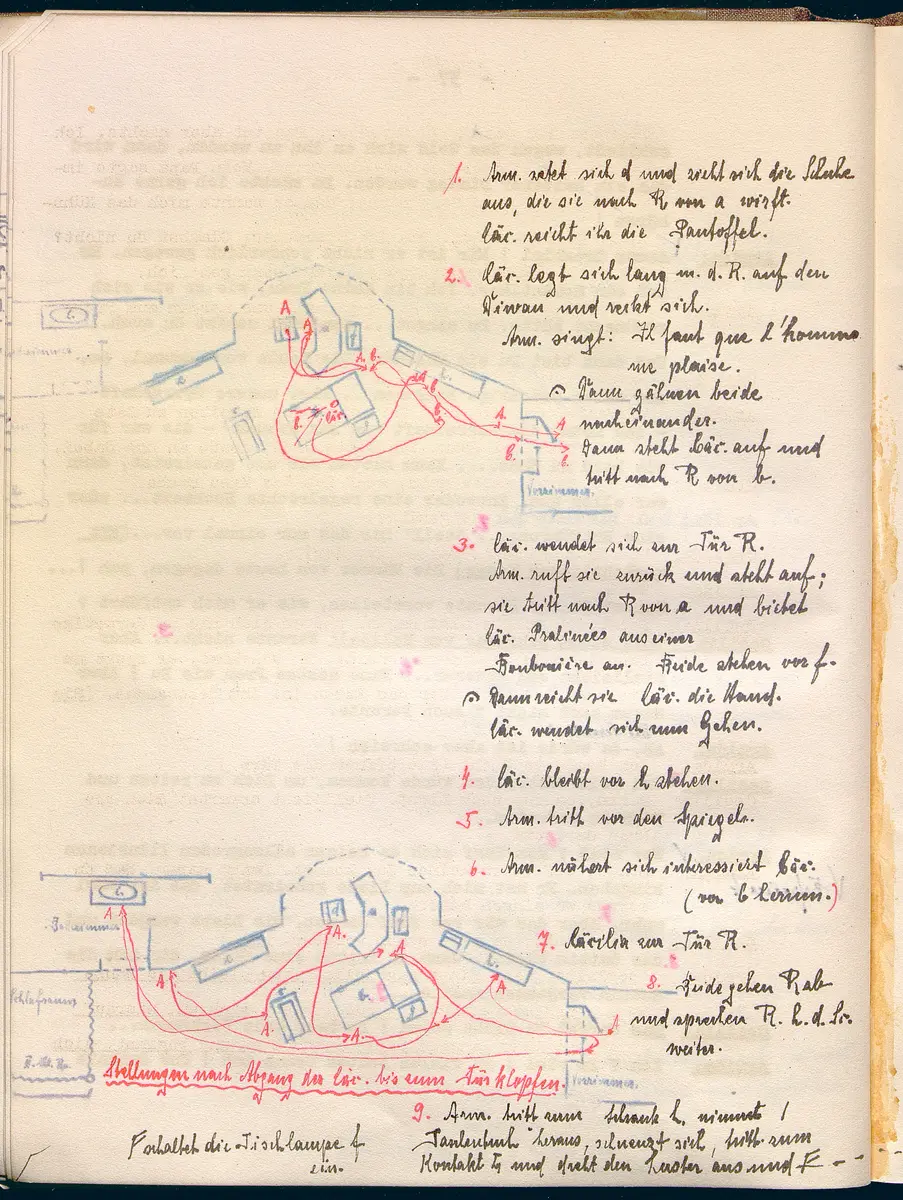 1. Arm. setzt sich d und zieht sich die Schuhe
aus, die sie nach R von a wirft.
Cäc. reicht ihr die Pantoffel.
2. Cäc. legt sich lang m. d. R. auf den
Diwan und reckt sich.
Arm. singt: Il faut que l'homme
me plaise.
Dann gähnen beide
nacheinander.
Dann steht Cäc. auf und
tritt nach R von b.
A
A
A. C.
A
C.
C. Cäc.
A.
A
C.
C.
Vorzimmer.
3. Cäc. wendet sich zur Tür R.
Arm. ruft sie zurück und steht auf;
sie tritt nach R von a und bietet
Cäc. Pralinées aus einer
Bonbonière an. Beide stehen vor f.
Dann reicht sie Cäc. die Hand.
Cäc. wendet sich zum Gehen.
4. Cäc. bleibt vor h stehen.
5. Arm. tritt vor den Spiegel.
6. Arm. nähert sich interessiert Cäc.
(von C herum.)
7. Cäcilie zur Tür R.
8. Beide gehen R ab
und sprechen R. h. d. Sc.
weiter.
A
A.
A
A
A.
A.
A
A
Schlafraum
Vorzimmer.
Stellungen nach Abgang der Cäc. bis zum Türklopfen.
9. Arm. tritt zum Schrank h, nimmt 1
Taschentuch heraus, schneuzt sich, tritt zum
Kontakt und dreht den Luster aus und F
F schaltet die Tischlampe f
ein.